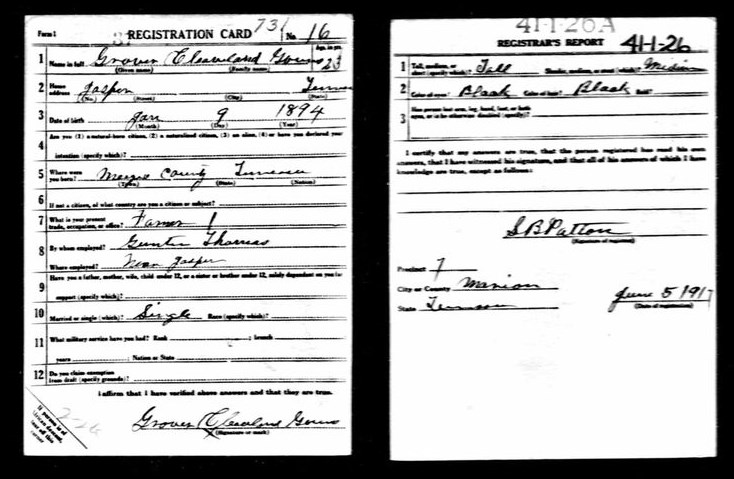 Form 1 REGISTRATION CARD 731 No. 16
1 Name in full Grover Cleveland Age, in yrs. 23
(Given name) (Family name)
2 Home address Jasper
(No.) (Street) (City) (State)
3 Date of birth Jan 9 1894
(Month) (Day) (Year)
4 Are you (1) a natural-born citizen, (2) a naturalized citizen, (3) an alien, (4) or have you declared your
intention (specify which)?
5 Where were you born? County Tennessee
(Town) (State) (Nation)
6 If not a citizen, of what country are you a citizen or subject?
7 What is your present trade, occupation, or office? Farmer
8 By whom employed? Thomas
Where employed? Near Jasper
9 Have you a father, mother, wife, child under 12, or a sister or brother under 12, solely dependent on you for
support (specify which)?
10 Married or single (which)? Single Race (specify which)?
11 What military service have you had? Rank ; branch
years ; Nation or State
12 Do you claim exemption from draft (specify grounds)?
I affirm that I have verified above answers and that they are true.
Grover Cleveland
(Signature or mark)
If person is of African descent, tear off this corner
41-1-26 A
REGISTRAR'S REPORT 41-1-26
1 Tall, medium, or short (specify which)? Tall Slender, medium, or stout (which)? Medium
2 Color of eyes? Black Color of hair? Black Bald?
3 Has person lost arm, leg, hand, foot, or both
eyes, or is he otherwise disabled (specify)?
I certify that my answers are true, that the person registered has read his own
answers, that I have witnessed his signature, and that all of his answers of which I have
knowledge are true, except as follows:
S B Patton
(Signature of registrar)
Precinct 7
City or County Marion
State June 5 1917
(Date of registration)